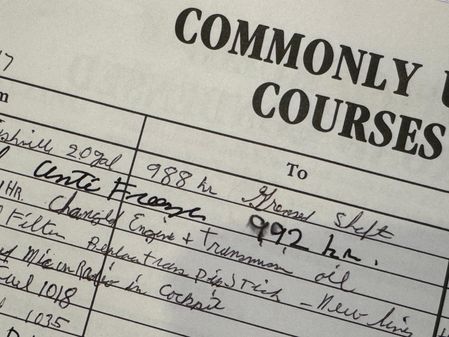 COMMONLY U
COURSES
17
m
To
shville 20 gal 988 hr Greased Shaft
Anti Freeze 992 hr.
HR. Changed Engine + transmission oil
Filter Replace trans Dip Stick - New line
Mic on Radio in Cockpit
Fuel 1018
1035